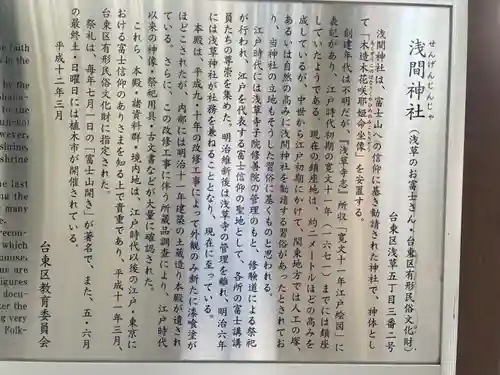 せんげんじんじゃ
浅間神社（浅草のお富士さん・台東区有形民俗文化財）
台東区浅草五丁目三番二号
浅間神社は、富士山への信仰に基き勧請された神社で、神体とし
て「木造木花咲耶姫命坐像」を安置する。
創建年代は不明だが、『浅草寺志』所収「寛文十一年江戸絵図」に
表記があり、江戸時代初期の寛文十一年（一六七一）までには鎮座
していたようである。現在の鎮座地は、約二メートルほどの高みを
成しているが、中世から江戸初期にかけて、関東地方では人工の塚、
あるいは自然の高みに浅間神社を勧請する習俗があったとされてお
り、当神社の立地もそうした習俗に基くものと思われる。
江戸時代には浅草寺子院修善院の管理のもと、修験道による祭祀
が行われ、江戸を代表する富士信仰の聖地として、各所の富士講講
員たちの尊崇を集めた。明治維新後は浅草寺の管理を離れ、明治六年
には浅草神社が社務を兼ねることとなり、現在に至っている。
本殿は、平成九・十年の改修工事によって外観のみ新たに漆喰塗が
ほどこされたが、内部には明治十一年建築の土蔵造り本殿が遺され
ている。さらに、この改修工事に伴う所蔵品調査により、江戸時代
以来の神像・祭祀用具・古文書などが大量に確認された。
これら、本殿、諸資料群・境内地は、江戸時代以後の江戸・東京に
おける富士信仰のありさまを知る上で貴重であり、平成十一年三月、
台東区有形民俗文化財に指定された。
祭礼は、毎年七月一日の「富士山開き」が著名で、また、五・六月
の最終土・日曜日には植木市が開催されている。
平成十二年三月
台東区教育委員会
the faith
in the
by the
the last
many
recon-
which
figures
docu-
er the
very
Folk-